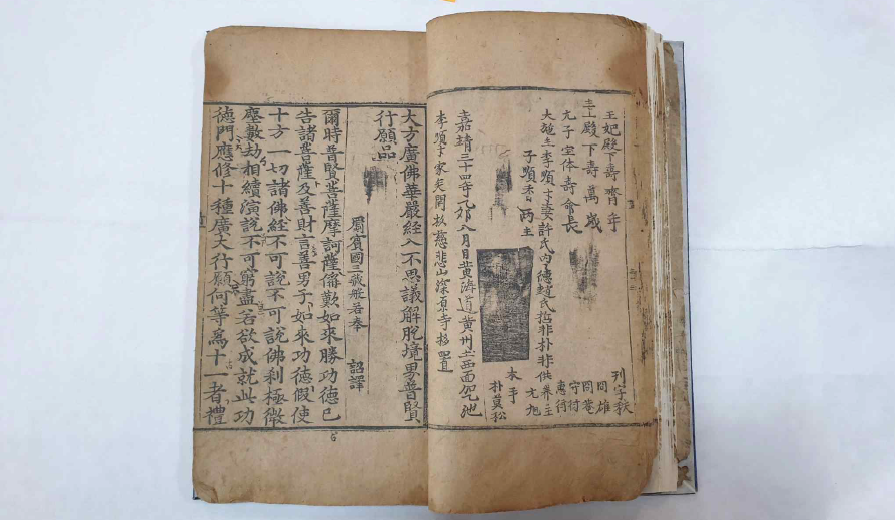 王妃殿下壽齊年
主上殿下壽萬歲
大施主李頃丁妻許氏
兩主
刋字秩
冋雄
守付
惠行
木手
朴莫松
嘉靖三十四年乙卯八月日黄海道黄州土西面
李頃丁家矣開板慈悲山深原寺移置
大方廣佛華嚴經入不思議解脫境界普賢
行願品
罽賓國三藏般若奉 詔譯
爾時普賢菩薩摩訶薩稱歎如來勝功德已
告諸菩薩及善財言善男子如來功德假使
十方一切諸佛經不可說不可說佛刹極微
塵數劫相續演說不可窮盡若欲成就此功
德門應修十種廣大行願何等爲十一者禮